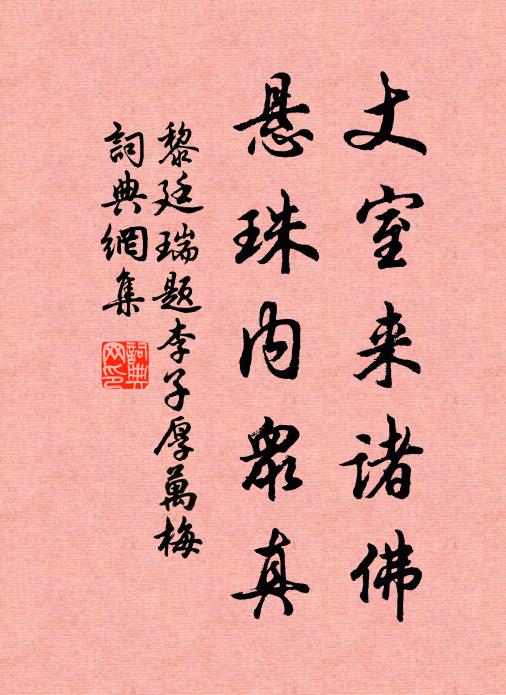 丈室来诸佛
悬珠内眾真
黎廷瑞题李子厚萬梅
詞典網集
詞典网印